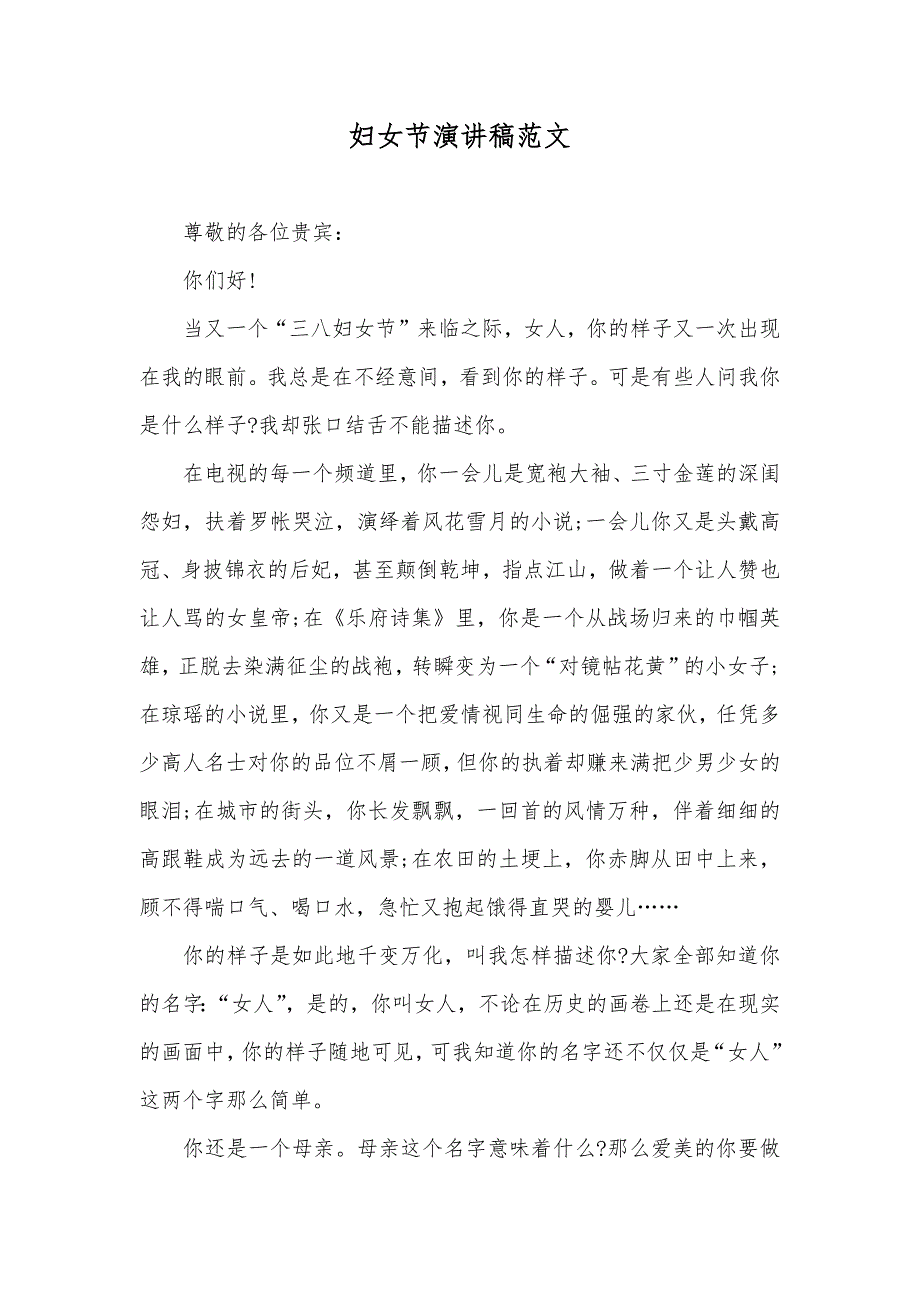 妇女节演讲稿范文
尊敬的各位贵宾：
你们好!
当又一个“三八妇女节”来临之际，女人，你的样子又一次出现
在我的眼前。我总是在不经意间，看到你的样子。可是有些人问我你
是什么样子?我却张口结舌不能描述你。
在电视的每一个频道里，你一会儿是宽袍大袖、三寸金莲的深闺
怨妇，扶着罗帐哭泣，演绎着风花雪月的小说;一会儿你又是头戴高
冠、身披锦衣的后妃，甚至颠倒乾坤，指点江山，做着一个让人赞也
让人骂的女皇帝;在《乐府诗集》里，你是一个从战场归来的巾帼英
雄，正脱去染满征尘的战袍，转瞬变为一个“对镜帖花黄”的小女子;
在琼瑶的小说里，你又是一个把爱情视同生命的倔强的家伙，任凭多
少高人名士对你的品位不屑一顾，但你的执着却赚来满把少男少女的
眼泪;在城市的街头，你长发飘飘，一回首的风情万种，伴着细细的
高跟鞋成为远去的一道风景;在农田的土埂上，你赤脚从田中上来，
顾不得喘口气、喝口水，急忙又抱起饿得直哭的婴儿……
你的样子是如此地千变万化，叫我怎样描述你?大家全部知道你
的名字：“女人”，是的，你叫女人，不论在历史的画卷上还是在现实
的画面中，你的样子随地可见，可我知道你的名字还不仅仅是“女人”
这两个字那么简单。
你还是一个母亲。母亲这个名字意味着什么?那么爱美的你要做